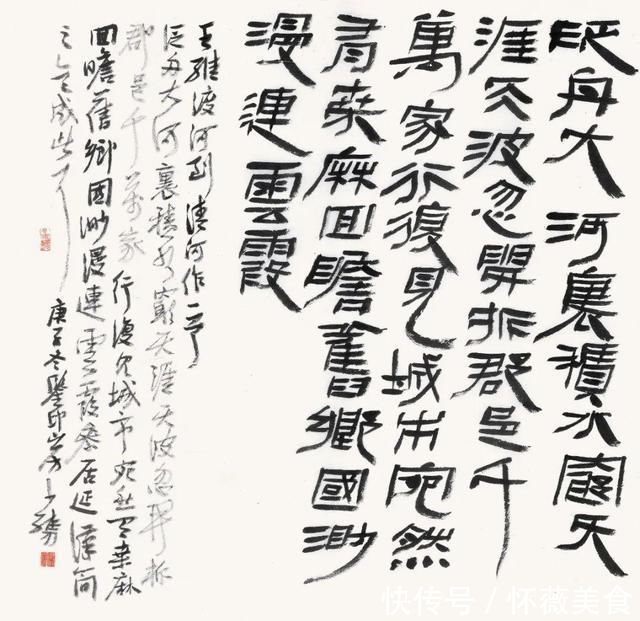 泛舟大河裏積水窮天
涯天波忽開拆郡邑千
萬家行復見城市宛然
有桑麻回瞻舊鄉國渺
漫連雲霞
王維渡河到清河作一首
泛舟大河裏積水窮天涯天波忽開拆
郡邑千萬家行復見城市宛然有桑麻
回瞻舊鄉國渺漫連雲霞叅居延漢簡
之意成此耳
庚子冬鑒印山房
快传号 / 怀薇美食